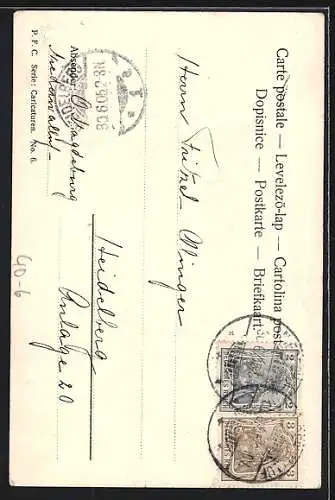 Carte postale — Levelező-lap — Cartolina post
Dopisnice — Postkarte — Briefkaart
Herrn Fritzel Klinger
Heidelberg
Anlage 20
Absender:
Magdeburg
P. F. C. Serie: Caricaturen. No. 6.
40-6
2
2
3
3